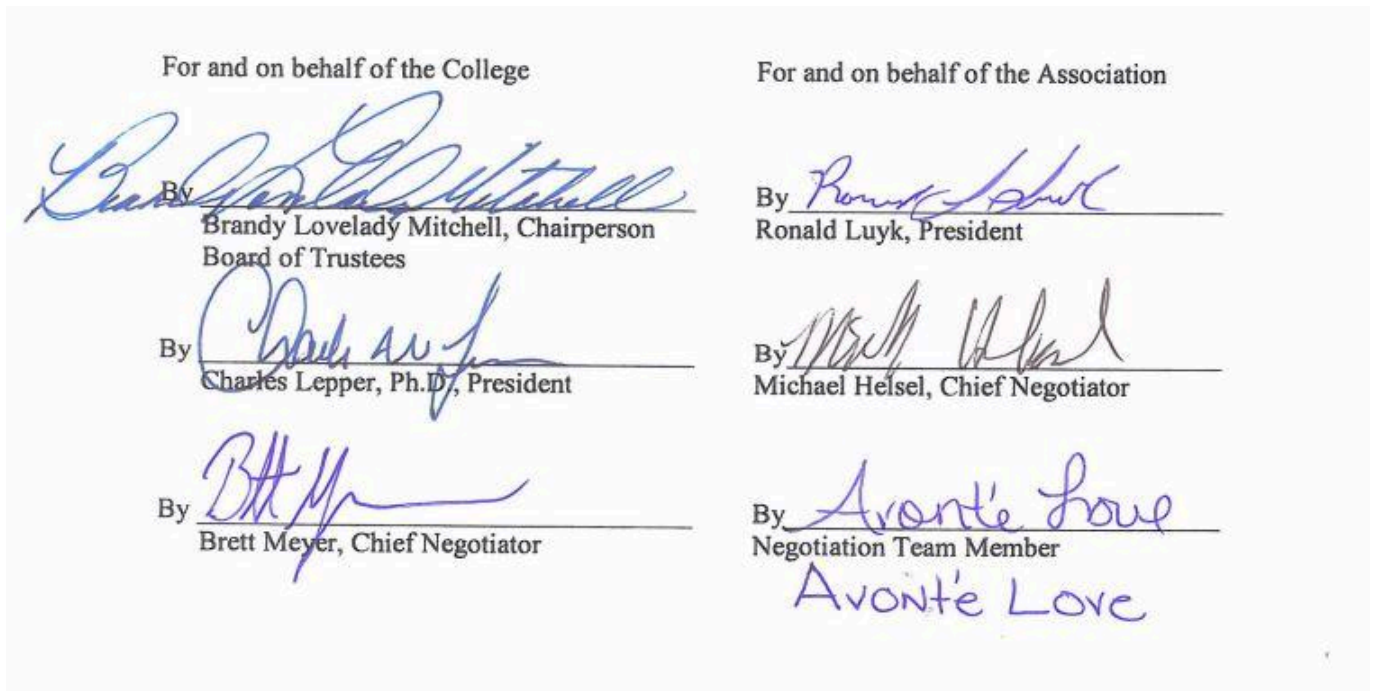 For and on behalf of the College
By Brandy Lovelady Mitchell
Brandy Lovelady Mitchell, Chairperson
Board of Trustees
By Charles
Charles Lepper, Ph.D., President
By Brett Meyer
Brett Meyer, Chief Negotiator
For and on behalf of the Association
By Ronald
Ronald Luyk, President
By Michael Helsel
Michael Helsel, Chief Negotiator
By Avonté Love
Negotiation Team Member
Avonté Love